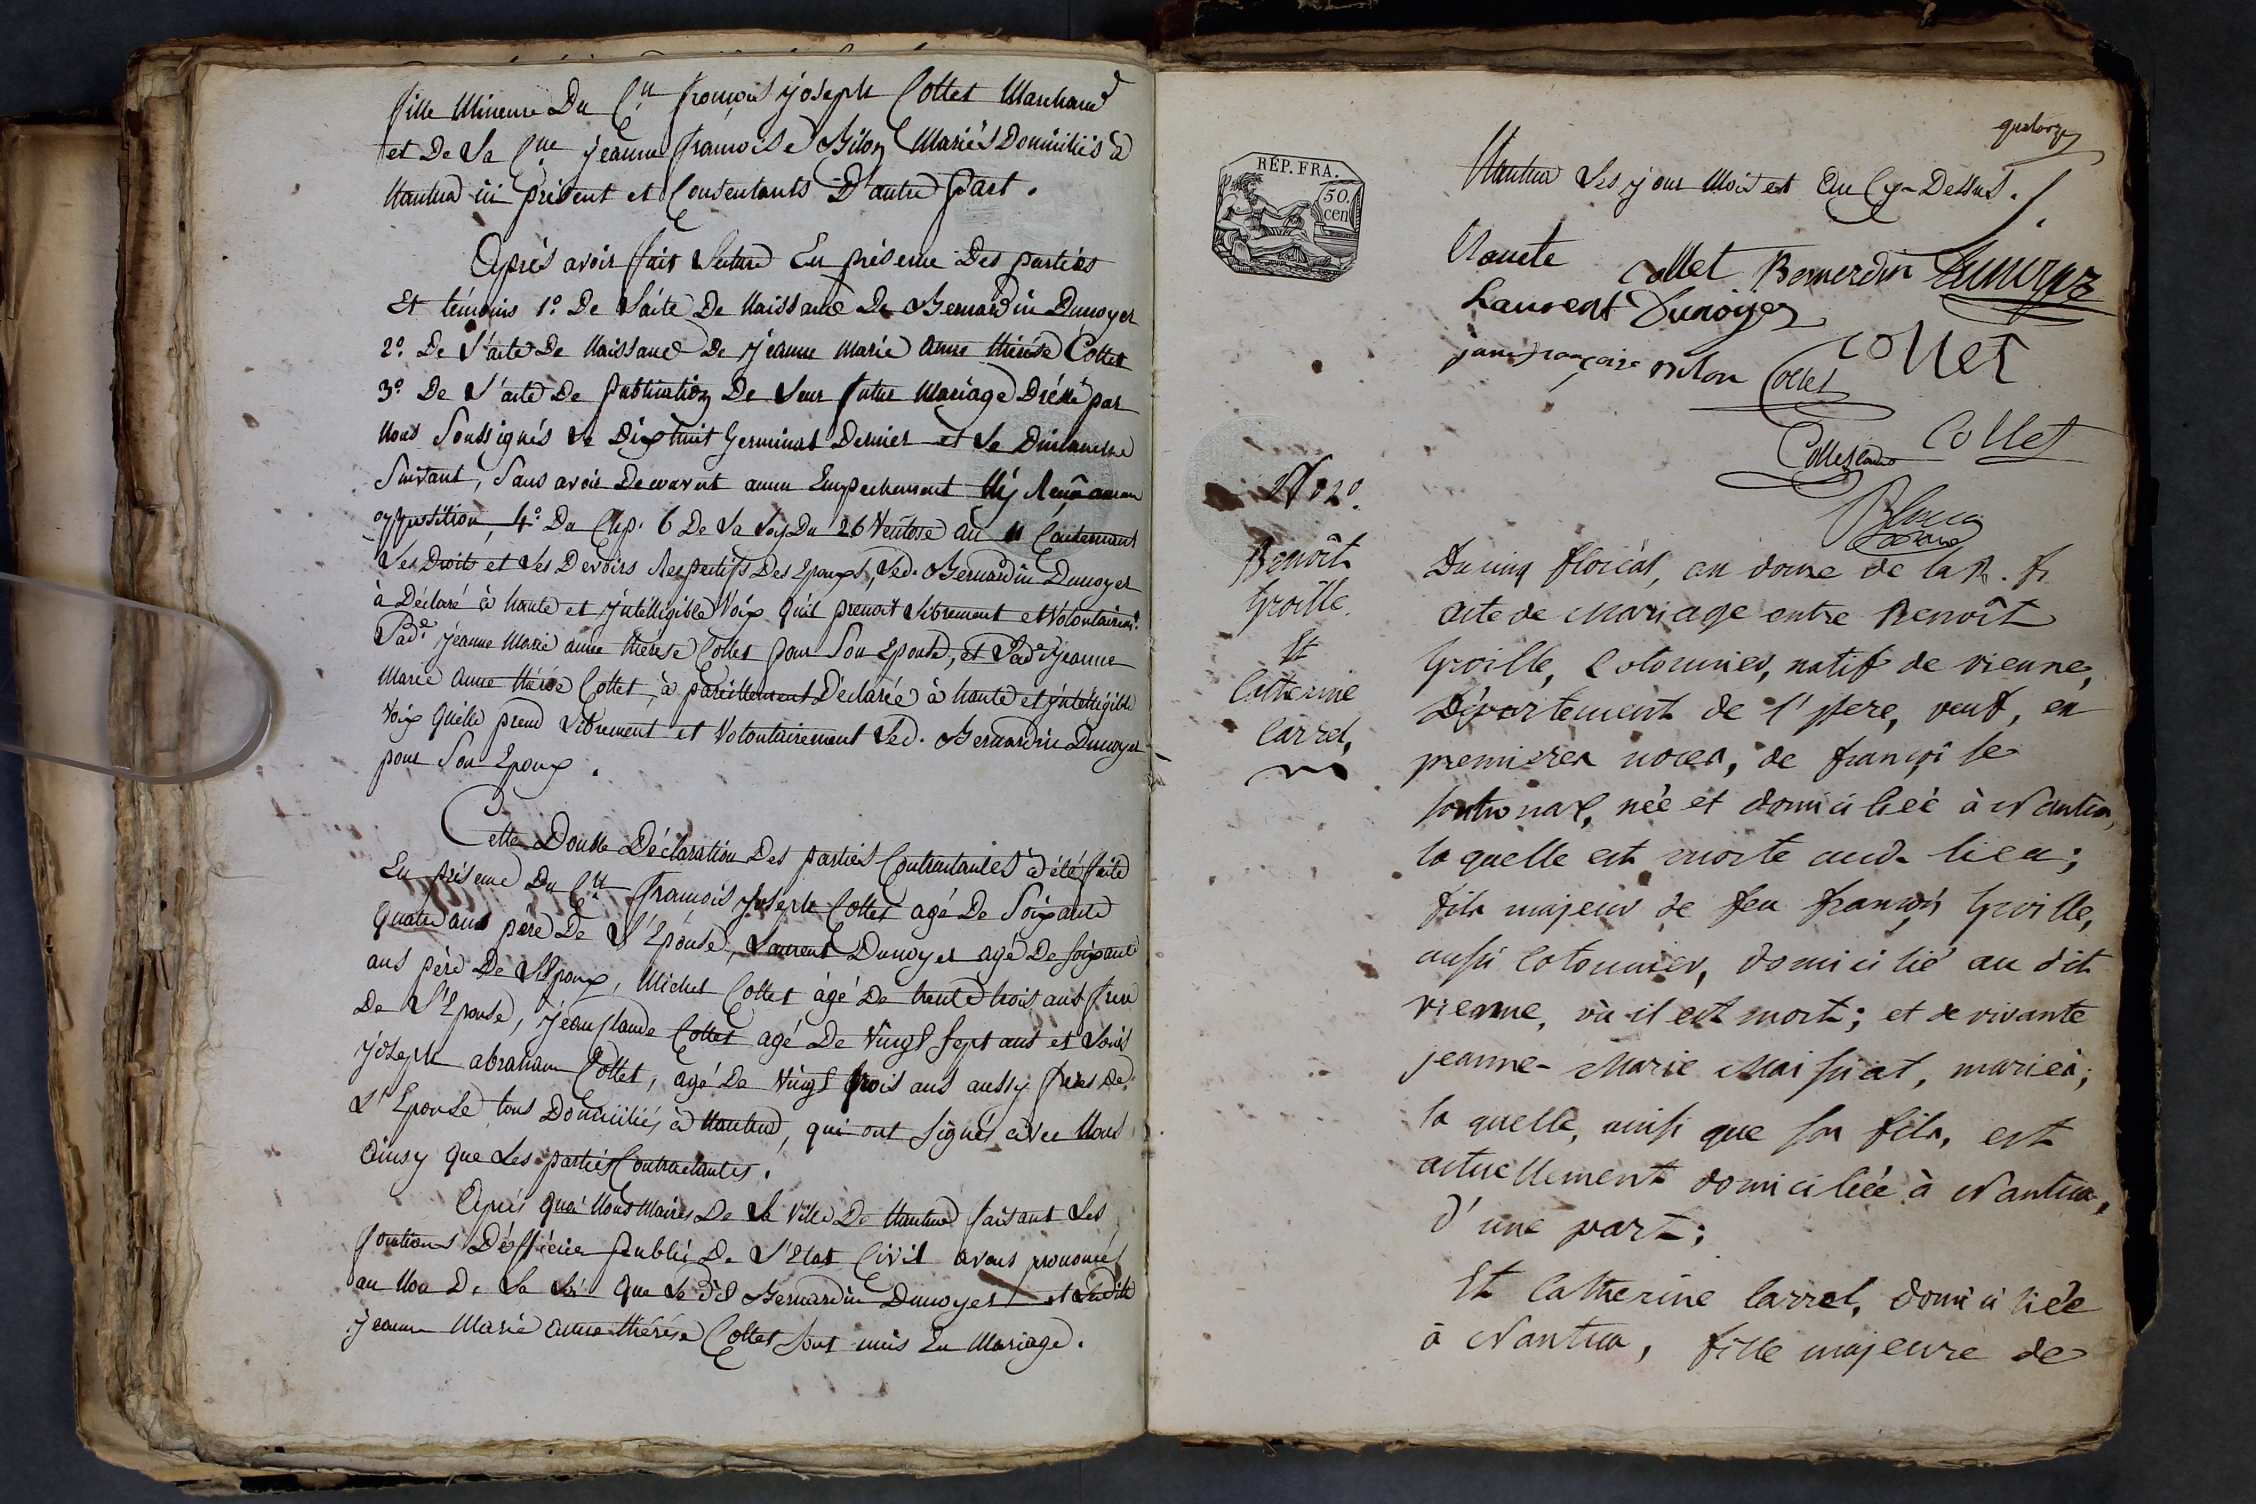 fille Mineure Du C.en françois joseph Collet Marchand
et De La C.ne jeanne françoise Bilon Mariés Domiciliés à
Nantua ici présent et Consentants D'autre part.
Après avoir fait Lecture En présence Des parties
Et témoins 1.o De L'acte De Naissance De Bernardin Dunoyer
2.o De L'acte De Naissance De jeanne marie anne thérése Collet
3.o De L'acte De publication De Leur futur Mariage Dréssé par
Nous Soussignés Le Dixhuit Germinal Dernier et Le Dimanche
Suivant, Sans avoir Decouvert aucun Empechement Ny Reçu aucune
oppostition, 4.o Du Chp. 6 De La Loy Du 26 Ventose an 11 Contenant
Les Droits et Les Devoirs Respectifs Des Epoux, Led. Bernardin Dunoyer
à Déclaré à haute et jntélligible Voix quil prenoit Librement et Volontairem.t
Lad.e jeanne Marie anne therese Collet pour Son Epouse, et Lad.e jeanne
Marie Anne thérése Collet, à pareillement Déclarée à haute et jntélligible
Voix quelle prend Librement et Volontairement Led. Bernardin Dunoyer
pour Son Epoux.
Cette Double Déclaration Des parties Contractantes à été faite
En présence Du C.en françois Joseph Collet agé De Soixante
quatre ans père De L'Epouse, Laurent Dunoyer agé De soixante
ans père De L'Epoux, Michel Collet agé De trente trois ans frere
De L'Epouse, jean Claude Collet agé De Vingt sept ans et Louis
joseph abraham Collet, agé De Vingt trois ans aussy freres De
L'Epouse, tous Domiciliés à Nantua, qui ont signés avec Nous
Ainsy que Les parties Contractantes.
Après quoi Nous Maires De La Ville De Nantua faisant Les
fonctions D'officier public De L'Etat Civil avons prononcé
au Nom De La Loi que Le dit Bernardin Dunoyer et Ladite
jeanne Marie anne thérése Collet sont unis En Mariage.
quatorze
Nantua Les jour Mois et An Cy-Dessus.
RÉP. FRA.
50.
cen
Collet Bernerdin Dunoyer
Laurent Dunoyer
jane françoise Bilon Collet Collet
Collet
N.o 20.
Benoît
Groille
Et
Catherine
Carrel,
Du cinq floréal, an douze de la R. fr.
acte de Mariage entre Benoît
Groille, Cotonnier, natif de vienne,
Département de l'jsere, veuf, en
premieres noces, de françoise
née et domiciliée à Nantua,
la quelle est morte aud. lieu;
fils majeur de feu françois Groille,
aussi Cotonnier, domicilié au dit
vienne, où il est mort; et de vivante
jeanne-Marie Maissiat, mariés;
la quelle, ainsi que son fils, est
actuellement domiciliée à Nantua,
d'une part;
Et Catherine Carrel, domiciliée
à Nantua, fille majeure de